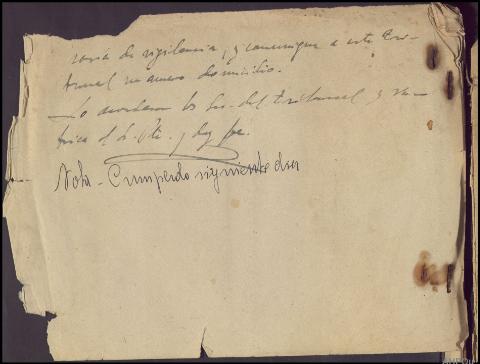 saría de vigilancia, y comunique a este Tri-
bunal su nuevo domicilio.
Lo acordaron los Sres. del tribunal y ru-
brica el S. Pte. y doy fe.
Nota - Cumplido siguiente dia